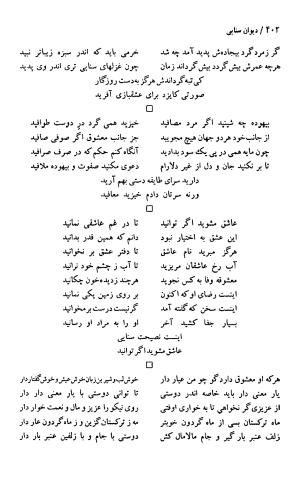 ۴۰۲ / دیوان سنایی
گر زمرد گرد بیجاده‌ش پدید آمد چه شد خرمی باید که اندر سبزه زیباتر نبید
هرچه عمرش بیش گردد بیش گرداند زمان چون غزلهای سنایی تری اندر وی پدید
کی تبه گرداندش هرگز به‌دست روزگار
صورتی کایزد برای عشقبازی آفرید
بیهوده چه شینید اگر مرد مصافید خیزید همی گرد در دوست طوافید
از جانب خود هر دو جهان هیچ مجویید جز جانب معشوق اگر صوفی صافید
چون مایه همی در پی یک سود بدادید آنگاه کنم حکم که در صرف صرافید
تا بر نکنید جان و دل از غیر دلارام دعوی مکنید صفوت و بیهوده ملافید
دارید سرای طایفه دستی بهم آرید
ورنه سرتان دادم خیزید معافید
عاشق مشوید اگر توانید تا در غم عاشقی نمانید
این عشق به اختیار نبود دانم که همین قدر بدانید
هرگز مبرید نام عاشق تا دفتر عشق بر نخوانید
آب رخ عاشقان مریزید تا آب ز چشم خود نرانید
معشوقه وفا به کس نجوید هرچند زدیده خون چکانید
اینست رضای او که اکنون بر روی زمین یکی نمانید
اینست سخن که گفته آمد گر نیست درست برمخوانید
بسیار جفا کشید آخر او را به مراد او رسانید
اینست نصیحت سنایی
عاشق مشوید اگر توانید
هرکه او معشوق دارد گو چو من عیار دار خوش لب و شیرین زبان خوش عیش و خوش گفتار دار
یار معنی دار باید خاصه اندر دوستی تا توانی دوستی با یار معنی دار دار
از عزیزی گر نخواهی تا به خواری اوفتی روی نیکو را عزیز و مال و نعمت خوار دار
ماه ترکستان بسی از ماه گردون خوبتر مه ز ترکستان گزین و ز ماه گردون عار دار
زلف عنبر بار گیر و جام مالامال کش دوستی با جام و با زلفین عنبر بار دار